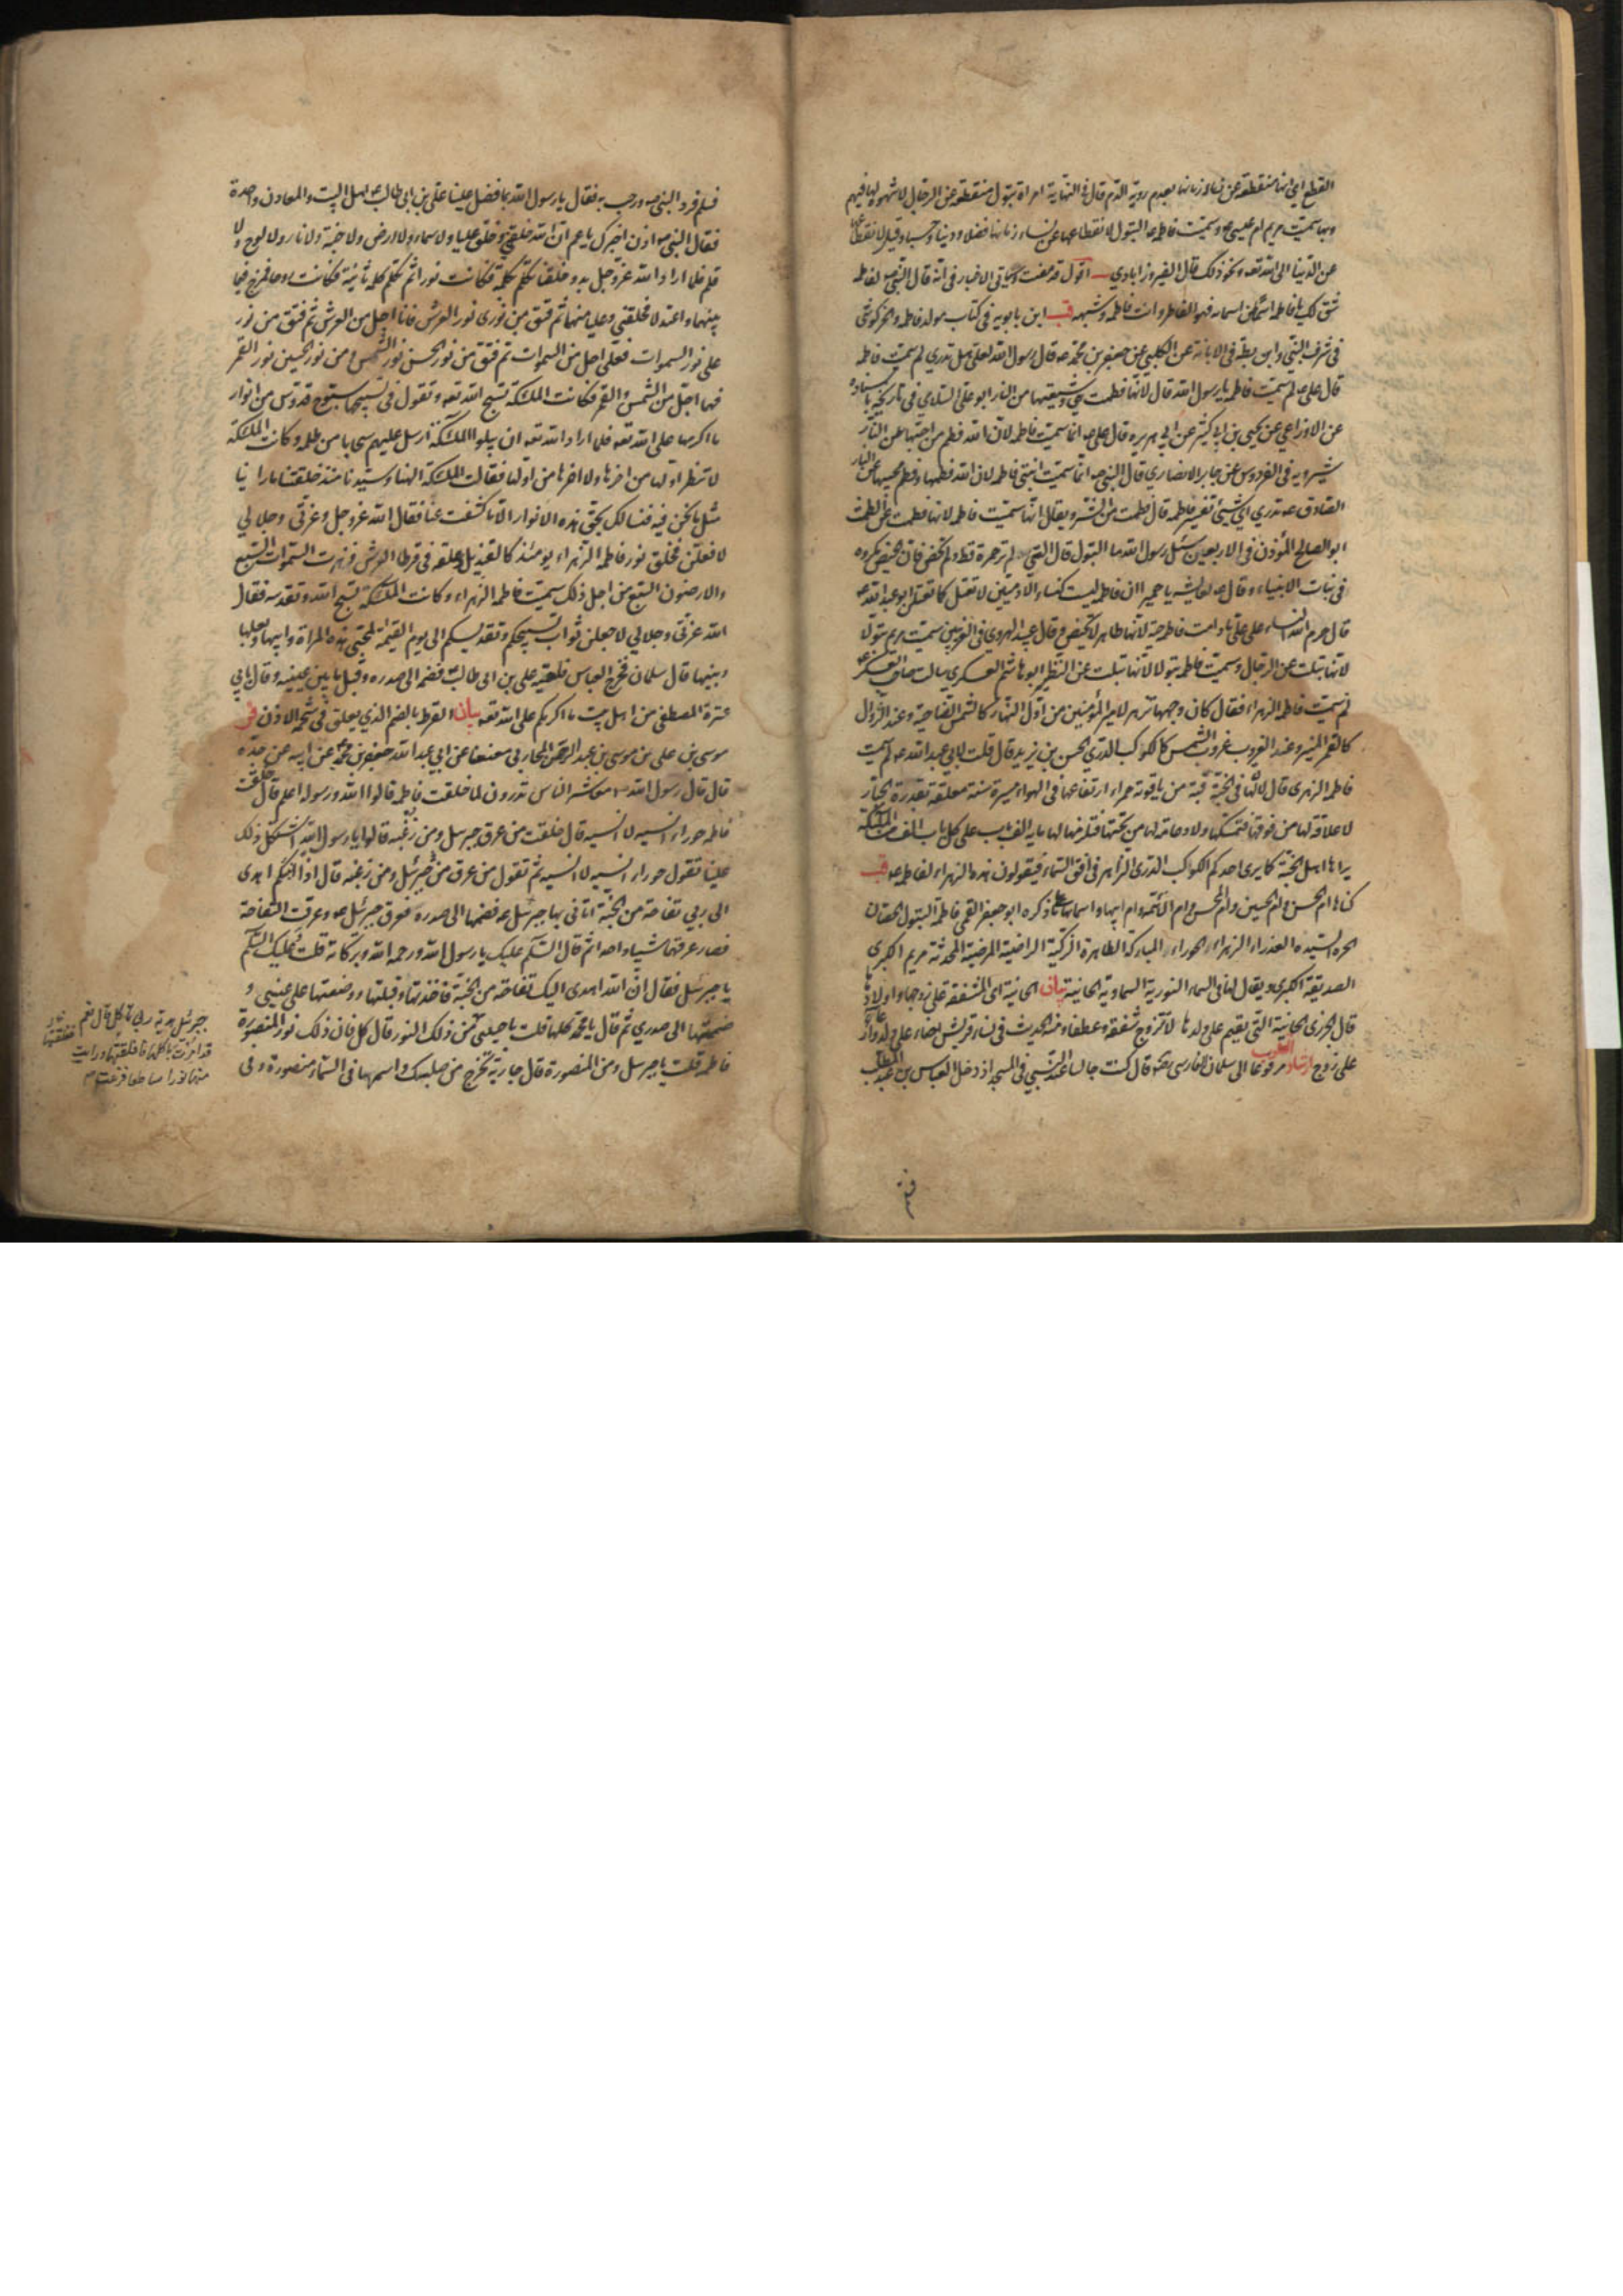 القطع اي انها منقطعة عن نساء زمانها بعدم روية الدم قال في النهاية امراة بتول منقطعة عن الرجال لا شهوة لها فيهم
وبها سميت مريم ام عيسى ع وسميت فاطمه البتول لانقطاعها عن نساء زمانها فضلا و دينا و حسبا و قيل لانقطاعها
عن الدنيا الى الله تعه و نحو ذلك قال الفيروزابادي اقول قد مضت و سياتي الاخبار في انه قال النبي ص لفاطمه
شق لك يا فاطمه اسما من اسمائه فهو الفاطر و انت فاطمه و شبهه قب ابن بابويه في كتاب مولد فاطمه و الخركوشي
في شرف النبي و ابن بطه في الابانة عن الكلبي عن جعفر بن محمد ع قال رسول الله لعلي هل تدري لم سميت فاطمه
قال علي ع لم سميت فاطمه يا رسول الله قال لانها فطمت هي و شيعتها من النار ابو علي السلامي في تاريخه باسناده
عن الاوزاعي عن يحيى بن ابي كثير عن ابي هريره قال علي ع انما سميت فاطمه لان الله فطم من احبها عن النار
شيرويه في الفردوس عن جابر الانصاري قال النبي ص انما سميت ابنتي فاطمه لان الله فطمها و فطم محبيها عن النار
الصادق ع تدري اي شيئ تفسير فاطمه قال فطمت من الشر و يقال انها سميت فاطمه لانها فطمت عن الطمث
ابو الصالح المؤذن في الاربعين سئل رسول الله ما البتول قال التي لم تر حمرة قط و لم تحض فان الحيض مكروه
في بنات الانبياء و قال ص لعايشه يا حميرا ان فاطمه ليست كنساء الادميين لا تعتل كما تعتلن ابو عبد الله ع
قال حرم الله النساء على علي ما دامت فاطمه حية لانها طاهرة لا تحيض و قال عبيد الهروي في الغريبين سميت مريم بتولا
لانها بتلت عن الرجال و سميت فاطمه بتولا لانها بتلت عن النظير ابو هاشم العسكري سالت صاحب العسكر ع
لم سميت فاطمه الزهراء فقال كان وجهها تزهر لامير المؤمنين من اول النهار كالشمس الضاحية و عند الزوال
كالقمر المنير و عند الغروب غروب الشمس كالكوكب الدري الحسن بن يزيد قال قلت لابي عبد الله ع لم سميت
فاطمه الزهرى قال لان لها في الجنة قبة من ياقوتة حمراء ارتفاعها في الهواء مسيرة سنة معلقة بقدرة الجبار
لا علاقة لها من فوقها فتمسكها و لا دعامة لها من تحتها فتلزمها لها ماية الف باب على كل باب الف من الملئكة
يراها اهل الجنة كما يرى احدكم الكوكب الدري الزاهر في افق السماء فيقولون هذه الزهراء لفاطمه ع قب
كناها ام الحسن و ام الحسين و ام المحسن و ام الائمه و ام ابيها و اسماءها على ما ذكره ابو جعفر القمي فاطمة البتول الحصان
الحره السيده العذراء الزهراء الحوراء المباركة الطاهرة الزكية الراضية المرضية المحدثة مريم الكبرى
الصديقة الكبرى و يقال لها في السماء النورية السماوية الحانية بيان الحانية اي المشفقة على زوجها و اولادها
قال الجزري الحانية التي تقيم على ولدها لا تتزوج شفقة و عطفا و منه الحديث في نساء قريش احناه على ولد و ارعاه
على زوج ارشاد القلوب مرفوعا الى سلمان الفارسي رضه قال كنت جالسا عند النبي في المسجد اذ دخل العباس بن عبد المطلب
فسلم فرد النبي ص و رحب به فقال يا رسول الله بما فضل علينا علي بن ابي طالب ع اهل البيت و المعادن واحدة
فقال النبي ص اذن اخبرك يا عم ان الله خلقني و خلق عليا و لا سماء و لا ارض و لا جنة و لا نار و لا لوح و لا
قلم فلما اراد الله عز و جل بدو خلقنا تكلم بكلمة فكانت نورا ثم تكلم كلمة ثانية فكانت روحا فمزج فيما
بينهما و اعتدلا فخلقني و عليا منهما ثم فتق من نوري نور العرش فانا اجل من العرش ثم فتق من نور
علي نور السموات فعلي اجل من السموات ثم فتق من نور الحسن نور الشمس و من نور الحسين نور القمر
فهما اجل من الشمس و القمر فكانت الملئكة تسبح الله تعه و تقول في تسبيحها سبوح قدوس من انوار
ما اكرمها على الله تعه فلما اراد الله تعه ان يبلو الملئكة ارسل عليهم سحابا من ظلمه و كانت الملئكة
لا تنظر اولها من اخرها و لا اخرها من اولها فقالت الملئكة الهنا و سيدنا منذ خلقتنا ما راينا
مثل ما نحن فيه فنسالك بحق هذه الانوار الا ما كشفت عنا فقال الله عز و جل و عزتي و جلالي
لافعلن فخلق نور فاطمه الزهراء يومئذ كالقنديل و علقه في قرط العرش فزهرت السموات السبع
و الارضون السبع من اجل ذلك سميت فاطمه الزهراء و كانت الملئكة تسبح الله و تقدسه فقال
الله عزتي و جلالي لاجعلن ثواب تسبيحكم و تقديسكم الى يوم القيمة لمحبي هذه المراة و ابيها و بعلها
و بنيها قال سلمان فخرج العباس فلقيه علي بن ابي طالب فضمه الى صدره و قبل ما بين عينيه و قال بابي
عترة المصطفى من اهل بيت ما اكرمكم على الله تعه بيان القرط بالضم الذي يعلق في شحمة الاذن فر
موسى بن علي بن موسى بن عبد الرحمن المحاربي معنعنا عن ابي عبد الله جعفر بن محمد عن ابيه عن جده
قال قال رسول الله معاشر الناس تدرون لما خلقت فاطمه قالوا الله و رسوله اعلم قال خلقت
فاطمه حوراء انسيه لا انسيه قال خلقت من عرق جبرئيل و من زغبه قالوا يا رسول الله اشتكل ذلك
علينا تقول حوراء انسيه لا انسيه ثم تقول من عرق جبرئيل و من زغبه قال اذا انبئكم اهدى
الي ربي تفاحة من الجنة اتاني بها جبرئيل ع فضمها الى صدره فعرق جبرئيل ع و عرقت التفاحة
فصار عرقهما شيئا واحدا ثم قال السلام عليك يا رسول الله و رحمه الله و بركاته قلت و عليك السلام
يا جبرئيل فقال ان الله اهدى اليك تفاحة من الجنة فاخذتها و قبلتها و وضعتها على عيني و
ضممتها الى صدري ثم قال يا محمد كلها قلت يا حبيبي
جبرئيل هدية ربي تؤكل قال نعم
قد امرت باكلها فافلقتها و رايت
منها نورا ساطعا ففزعت
من ذلك النور قال كل فان ذلك نور المنصورة
فاطمه قلت يا جبرئيل و من المنصورة قال جارية تخرج من صلبك و اسمها في السماء منصورة و في